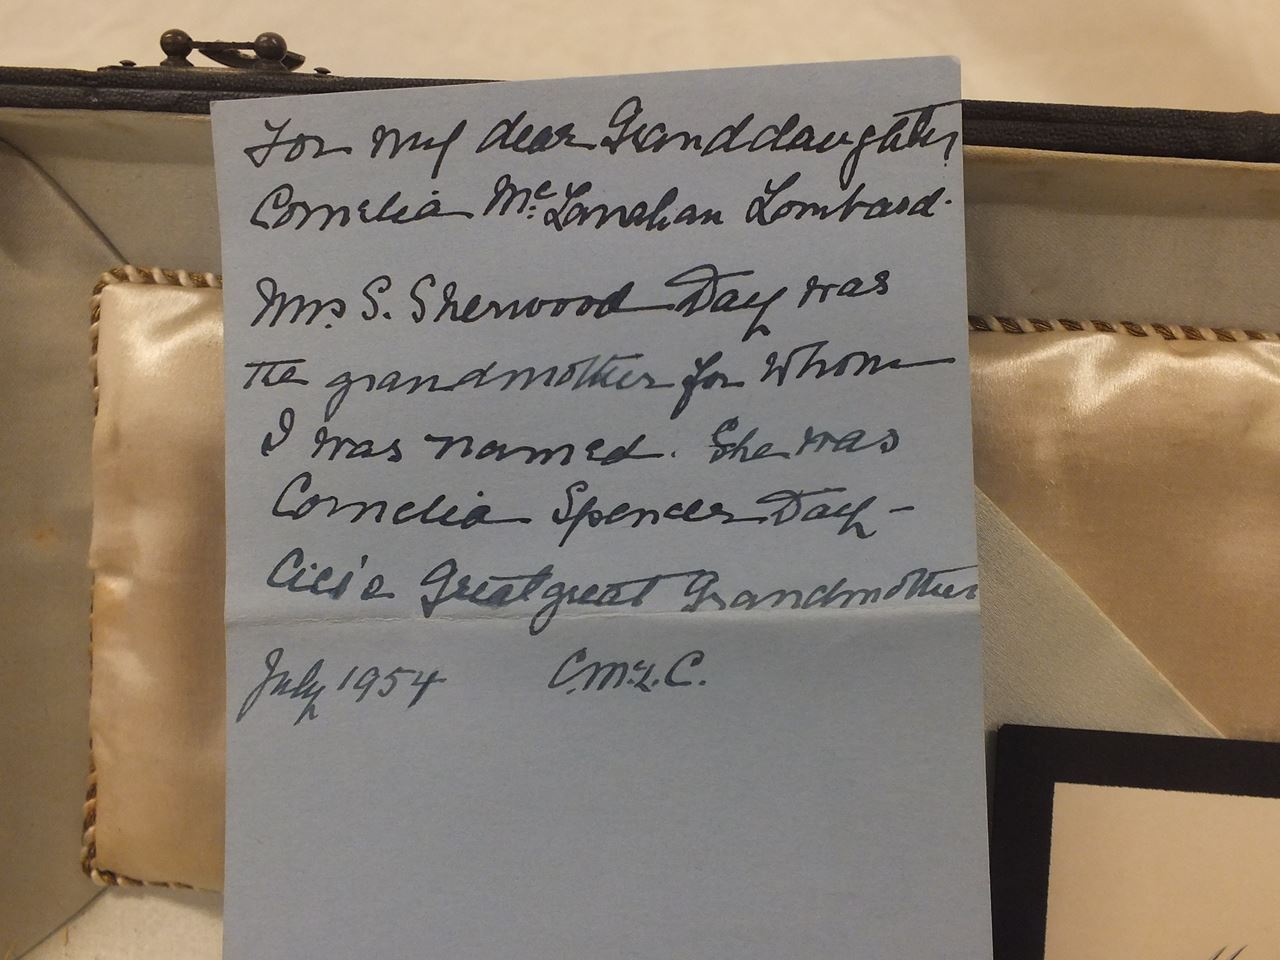 For my dear Granddaughter,
Cornelia McLanahan Lombard.
Mrs. S. Sherwood Day was
the grandmother for whom
I was named. She was
Cornelia Spencer Day -
Great great Grandmother
July 1954 C. McL. C.